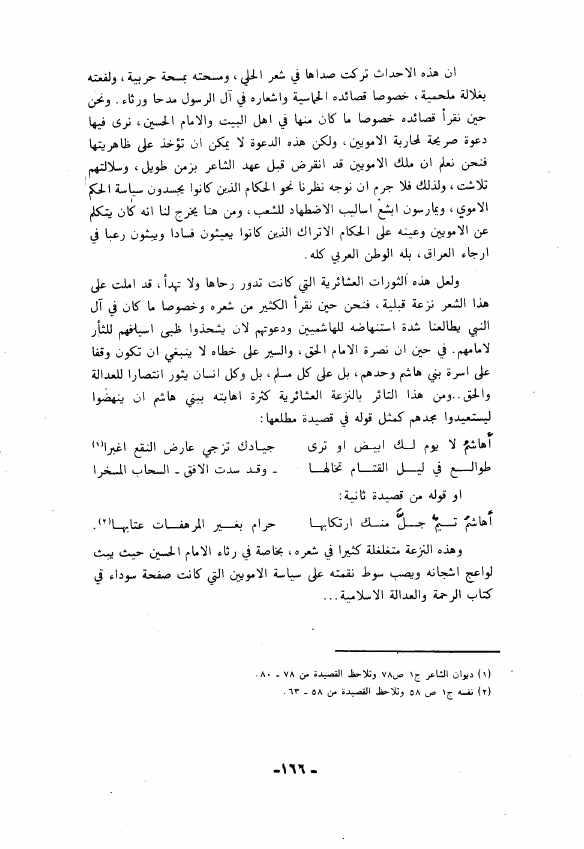 ان هذه الاحداث تركت صداها في شعر الحلي، ومسحته بمسحة حربية، ولفعته
بغلالة ملحمية، خصوصا قصائده الحماسية واشعاره في آل الرسول مدحا ورثاء. ونحن
حين نقرأ قصائده خصوصا ما كان منها في اهل البيت والامام الحسين، نرى فيها
دعوة صريحة لمحاربة الامويين، ولكن هذه الدعوة لا يمكن ان تؤخذ على ظاهريتها
فنحن نعلم ان ملك الامويين قد انقرض قبل عهد الشاعر بزمن طويل، وسلالتهم
تلاشت، ولذلك فلا جرم ان نوجه نظرنا نحو الحكام الذين كانوا يجسدون سياسة الحكم
الاموي، ويمارسون ابشع اساليب الاضطهاد للشعب، ومن هنا يخرج لنا انه كان يتكلم
عن الامويين وعينه على الحكام الاتراك الذين كانوا يعيثون فسادا ويبثون رعبا في
ارجاء العراق، بله الوطن العربي كله.
ولعل هذه الثورات العشائرية التي كانت تدور رحاها ولا تهدأ، قد املت على
هذا الشعر نزعة قبلية، فنحن حين نقرأ الكثير من شعره وخصوصا ما كان في آل
النبي يطالعنا شدة استنهاضه للهاشميين ودعوتهم لان يشحذوا ظبى اسيافهم للثأر
لامامهم. في حين ان نصرة الامام الحق، والسير على خطاه لا ينبغي ان تكون وقفا
على اسرة بني هاشم وحدهم، بل على كل مسلم، بل وكل انسان يثور انتصارا للعدالة
والحق..ومن هذا التاثر بالنزعة العشائرية كثرة اهابته ببني هاشم ان ينهضوا
ليستعيدوا مجدهم كمثل قوله في قصيدة مطلعها:
أهاشمُ لا يوم لك ابيض او ترى جيادك تزجي عارض النقع اغبرا(١)
طوالع في ليل القتام تخالها - وقد سدت الافق - السحاب المسخرا
او قوله من قصيدة ثانية:
أهاشمُ تيمٌ جلَّ منك ارتكابها حرام بغير المرهفات عتابها(٢).
وهذه النزعة متغلغلة كثيرا في شعره، بخاصة في رثاء الامام الحسين حيث يبث
لواعج اشجانه ويصب سوط نقمته على سياسة الامويين التي كانت صفحة سوداء في
كتاب الرحمة والعدالة الاسلامية...
(١) ديوان الشاعر ج١ ص٧٨ وتلاحظ القصيدة من ٧٨ - ٨٠.
(٢) نفسه ج١ ص ٥٨ وتلاحظ القصيدة من ٥٨ - ٦٣.
-١٦٦-